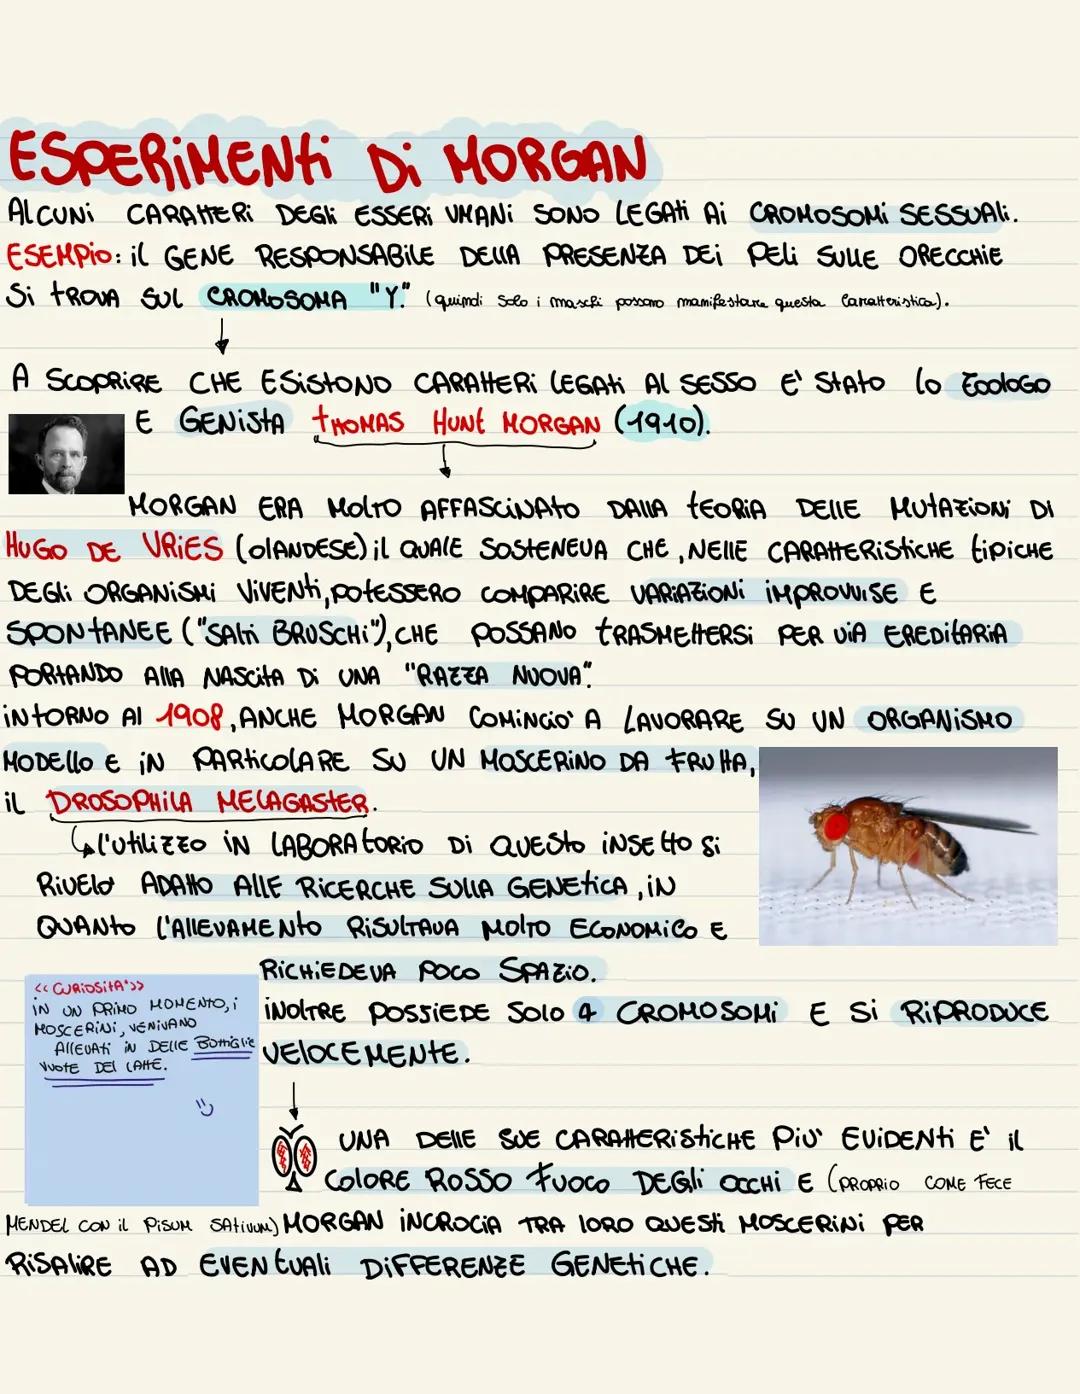 ESPERIMENTI DI MORGAN
ALCUNI CARATTERI DEGLI ESSERI UMANI SONO LEGATI AI CROMOSOMI SESSUALI.
ESEMPIO: IL GENE RESPONSABILE DELLA PRESENZA DEI PELI SULLE ORECCHIE
SI TROVA SUL CROMOSOMA "Y". (quindi solo i maschi possono manifestare questa caratteristica).
A SCOPRIRE CHE ESISTONO CARATTERI LEGATI AL SESSO E' STATO LO ZOOLOGO
E GENISTA THOMAS HUNT MORGAN (1910).
MORGAN ERA MOLTO AFFASCINATO DALLA TEORIA DELLE MUTAZIONI DI
HUGO DE VRIES (OLANDESE) IL QUALE SOSTENEVA CHE, NELLE CARATTERISTICHE TIPICHE
DEGLI ORGANISMI VIVENTI, POTESSERO COMPARIRE VARIAZIONI IMPROVVISE E
SPONTANEE ("SALTI BRUSCHI"), CHE POSSANO TRASMETTERSI PER VIA EREDITARIA
PORTANDO ALLA NASCITA DI UNA "RAZZA NUOVA".
INTORNO AL 1908, ANCHE MORGAN COMINCIO' A LAVORARE SU UN ORGANISMO
MODELLO E IN PARTICOLARE SU UN MOSCERINO DA FRUTTA,
IL DROSOPHILA MELAGASTER.
L'UTILIZZO IN LABORATORIO DI QUESTO INSETTO SI
RIVELO' ADATTO ALLE RICERCHE SULLA GENETICA, IN
QUANTO L'ALLEVAMENTO RISULTAVA MOLTO ECONOMICO E
RICHIEDEVA POCO SPAZIO.
INOLTRE POSSIEDE SOLO 4 CROMOSOMI E SI RIPRODUCE
VELOCEMENTE.
<<CURIOSITA'>>
IN UN PRIMO MOMENTO, I
MOSCERINI, VENIVANO
ALLEVATI IN DELLE BOTTIGLIE
VUOTE DEL LATTE.
UNA DELLE SUE CARATTERISTICHE PIU' EVIDENTI E' IL
COLORE ROSSO FUOCO DEGLI OCCHI E (PROPRIO COME FECE
MENDEL CON IL PISUM SATIVUM) MORGAN INCROCIA TRA LORO QUESTI MOSCERINI PER
RISALIRE AD EVENTUALI DIFFERENZE GENETICHE.